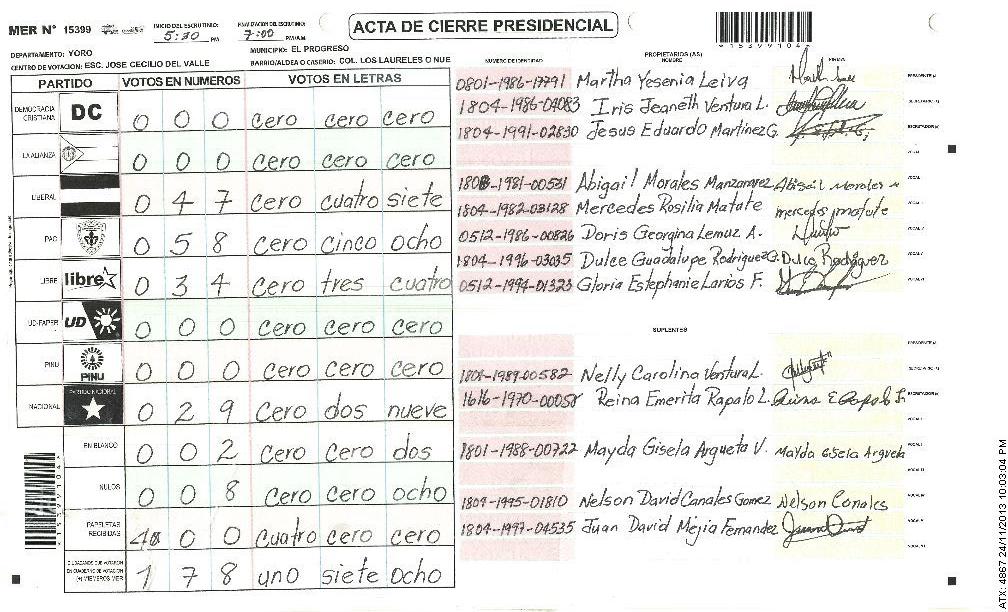 MER N° 15399
INICIO DEL ESCRUTINIO: 5:30 PM
FINALIZACION DEL ESCRUTINIO: 7:00 PM/AM
ACTA DE CIERRE PRESIDENCIAL
*15399104*
DEPARTAMENTO: YORO
MUNICIPIO: EL PROGRESO
CENTRO DE VOTACION: ESC. JOSE CECILIO DEL VALLE
BARRIO/ALDEA O CASERIO: COL. LOS LAURELES O NUE
PARTIDO VOTOS EN NUMEROS VOTOS EN LETRAS
DEMOCRACIA CRISTIANA DC 0 0 0 cero cero cero
LA ALIANZA 0 0 0 cero cero cero
LIBERAL 0 4 7 cero cuatro siete
PAC 0 5 8 cero cinco ocho
LIBRE libre 0 3 4 cero tres cuatro
UD-FAPER UD 0 0 0 cero cero cero
PINU PINU 0 0 0 cero cero cero
NACIONAL PARTIDO NACIONAL 0 2 9 cero dos nueve
EN BLANCO 0 0 2 cero cero dos
NULOS 0 0 8 cero cero ocho
PAPELETAS RECIBIDAS 4 0 0 cuatro cero cero
CIUDADANOS QUE VOTARON EN CUADERNO DE VOTACION (+) MIEMBROS MER 1 7 8 uno siete ocho
NUMERO DE IDENTIDAD PROPIETARIOS (AS) NOMBRE FIRMA
0801-1986-17791 Martha Yesenia Leiva
1804-1986-04083 Iris Jeaneth Ventura L.
1804-1991-02830 Jesus Eduardo Martinez G.
1808-1981-00531 Abigail Morales Manzanarez Abigail Morales M
1804-1982-03128 Mercedes Rosilia Matute mercedes matute
0512-1986-00826 Doris Georgina Lemuz A.
1804-1996-03035 Dulce Guadalupe Rodriguez G. Dulce Rodriguez
0512-1994-01323 Gloria Estephanie Larios F.
SUPLENTES
1804-1989-00582 Nelly Carolina Ventura L.
1616-1970-00058 Reina Emerita Rapalo L. Reina E Rapalo L
1801-1988-00722 Mayda Gisela Argueta V. Mayda Gisela Argueta
1804-1995-01810 Nelson David Canales Gomez Nelson Canales
1804-1997-04535 Juan David Mejia Fernandez
*15399104*
ATX: 4867 24/11/2013 10:03:04 PM